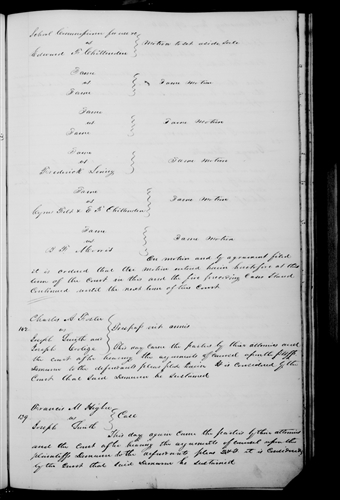 vs } Motion to set aside Sale
Edward P. Chittenden
Same
vs } Same motion
Same
Same
vs } Same Motion
Same
Same
vs } Same Motion
Frederick
Same
vs } Same Motion
& E P Chittenden
Same
vs } Same Motion
On motion and by agreement filed
it is ordered that the motion entered herein heretofore at this
term of the Court in this and the five preceding Cases Stand
Continued until the next term of this Court
Charles A.
vs } Trespass vi et armis
Joseph Smith and
Joseph This day came the parties by their attornies and
the court after hearing the arguments of counsel upon the plffs
demurrer to the defendants pleas filed herein It is considered by the
Court that Said demurrer be Sustained
Francis M Higbee
129 vs } Case
Joseph Smith
This day again came the parties by their attornies
and the Court after hearing the arguments of counsel upon the
plaintiffs demurrer to the defendants pleas 2 & 3 it is considered
by the Court that said demurrer be sustained